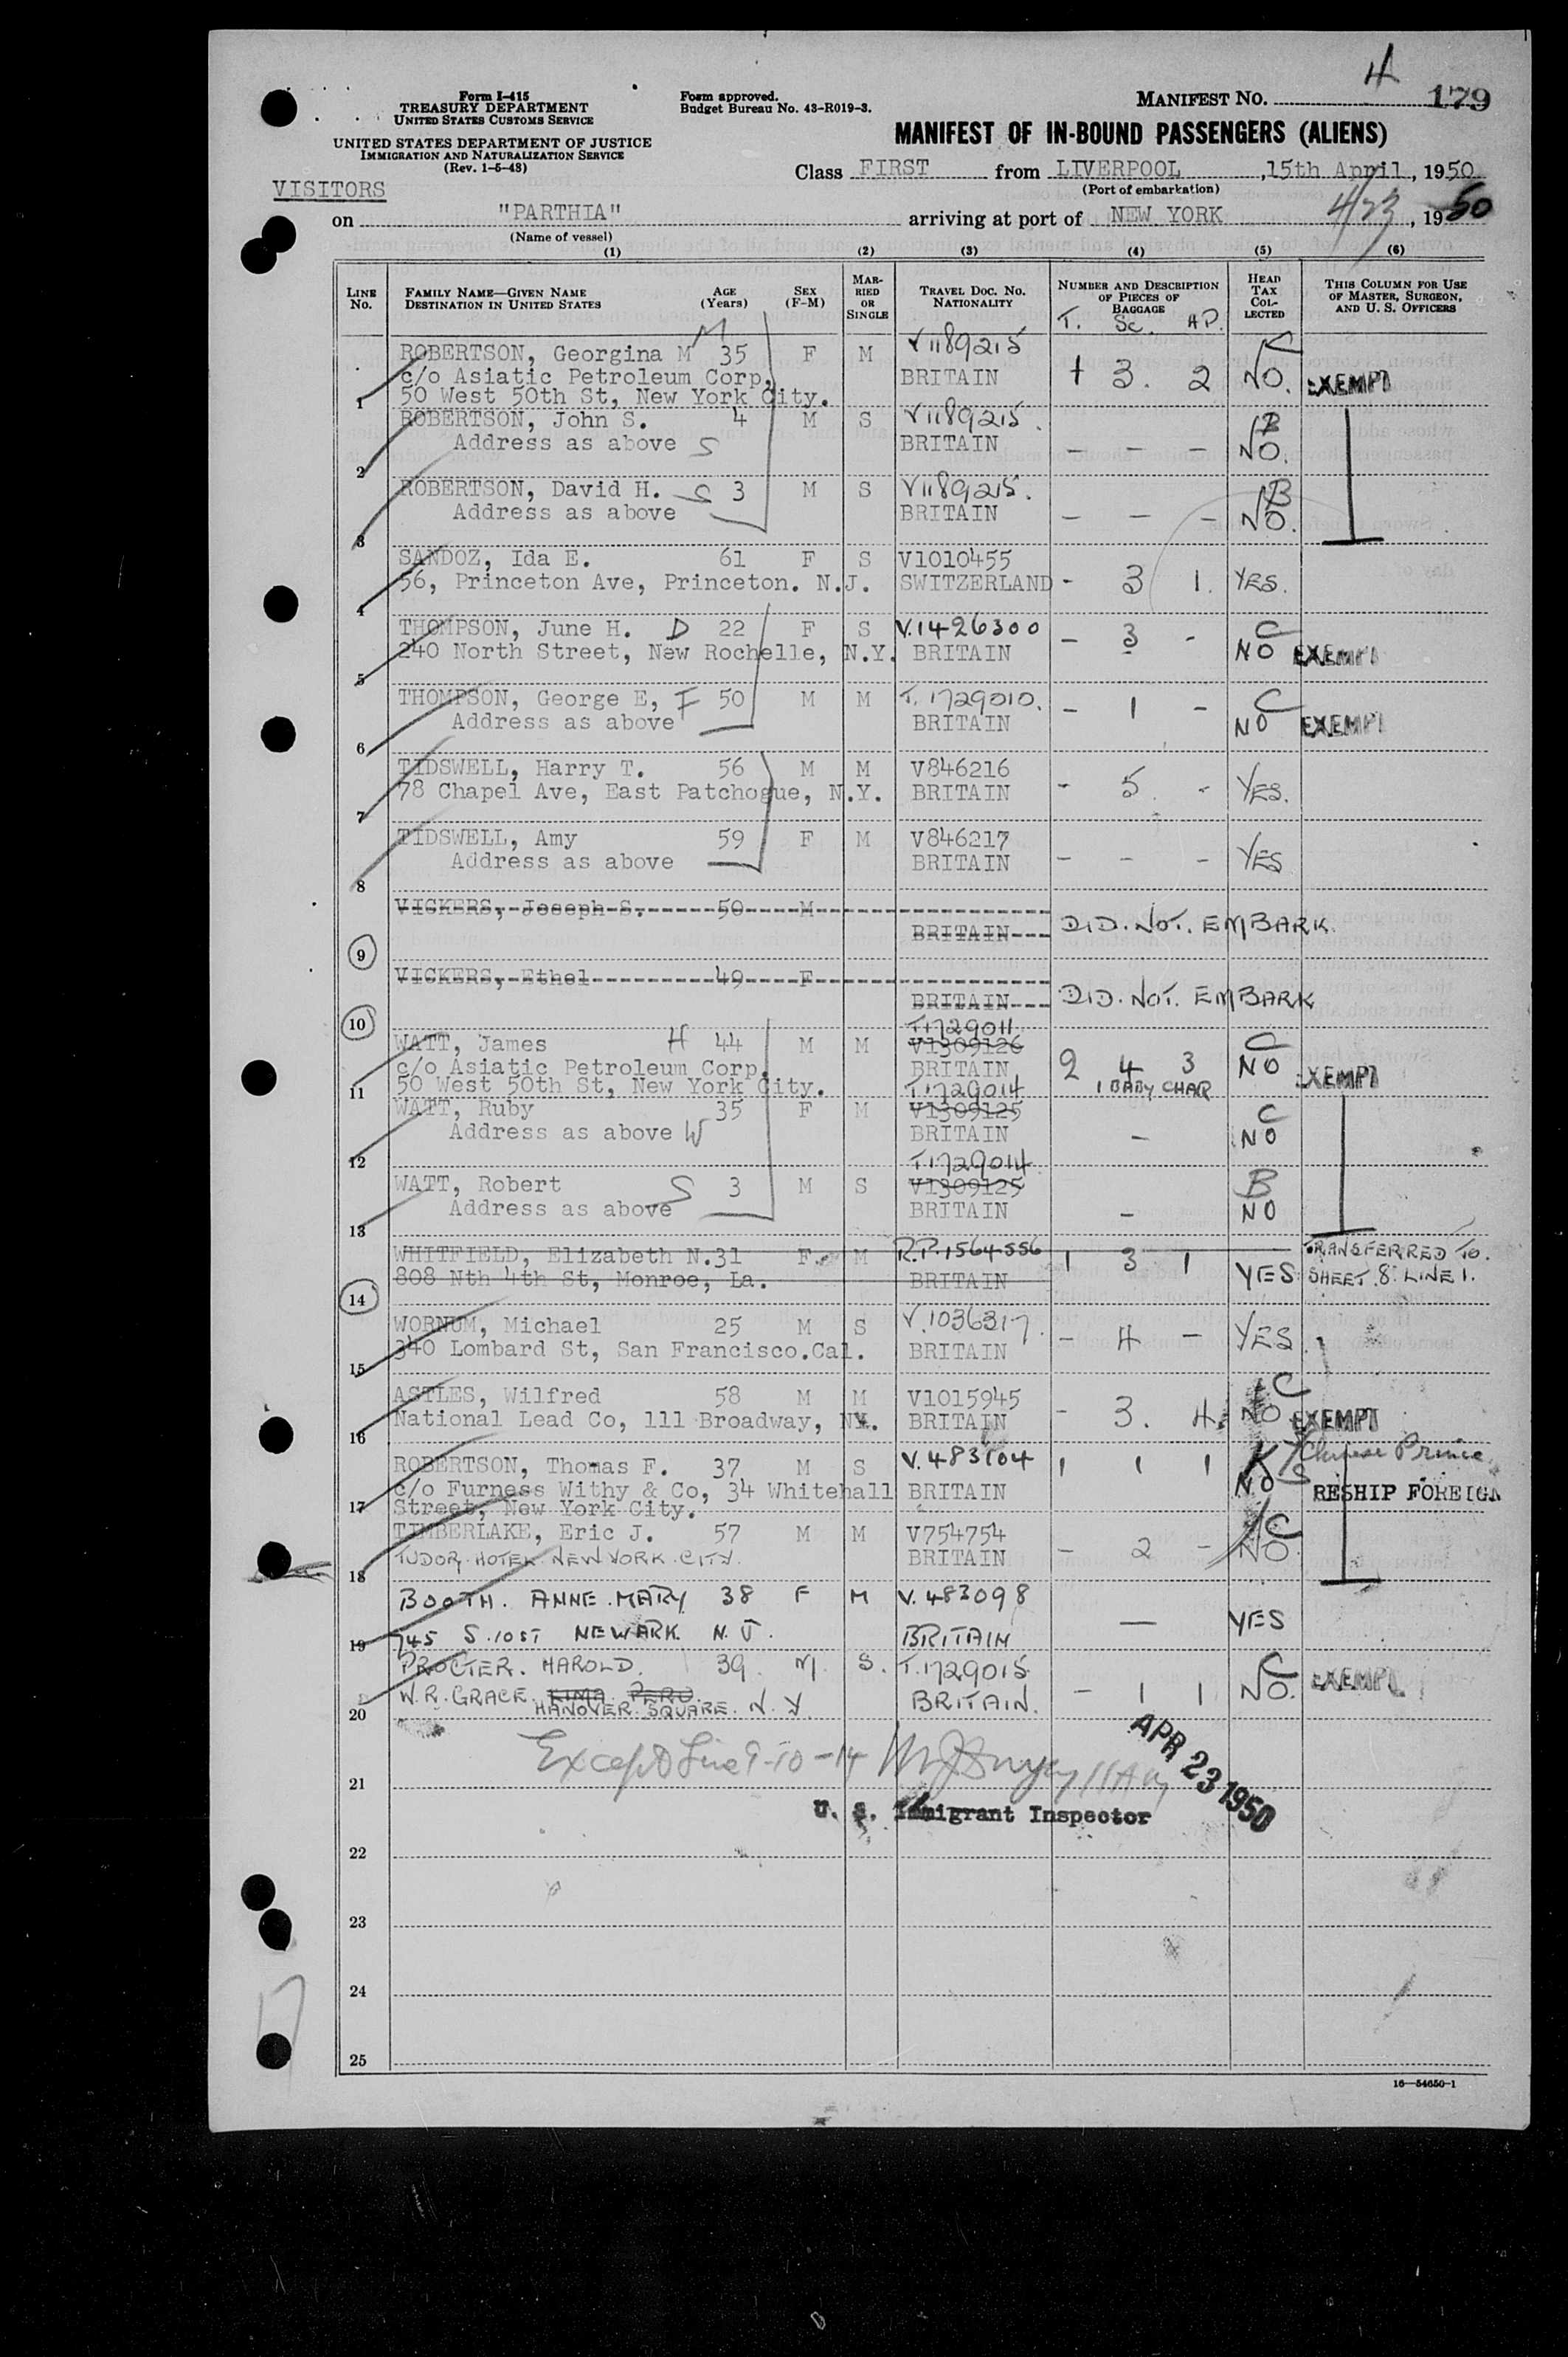 4
179
Form I-415
TREASURY DEPARTMENT
UNITED STATES CUSTOMS SERVICE
UNITED STATES DEPARTMENT OF JUSTICE
IMMIGRATION AND NATURALIZATION SERVICE
(Rev. 1-5-48)
Form approved.
Budget Bureau No. 43-R019-3.
MANIFEST NO.
MANIFEST OF IN-BOUND PASSENGERS (ALIENS)
Class FIRST from LIVERPOOL, 15th April, 1950
(Port of embarkation)
VISITORS
on "PARTHIA" arriving at port of NEW YORK 4/23, 1950
(Name of vessel)
(1) (2) (3) (4) (5) (6)
LINE No. FAMILY NAME—GIVEN NAME DESTINATION IN UNITED STATES AGE (Years) SEX (F-M) MARRIED OR SINGLE TRAVEL DOC. No. NATIONALITY NUMBER AND DESCRIPTION OF PIECES OF BAGGAGE HEAD TAX COLLECTED THIS COLUMN FOR USE OF MASTER, SURGEON, AND U. S. OFFICERS
T. Sc. HP.
M
ROBERTSON, Georgina M 35 F M V1189215
c/o Asiatic Petroleum Corp, BRITAIN 1 3. 2 NO. EXEMPT
1 50 West 50th St, New York City.
ROBERTSON, John S. 4 M S V1189215. B
Address as above S BRITAIN - - - NO.
2
ROBERTSON, David H. S 3 M S V1189215. B
Address as above BRITAIN - - - NO.
3
SANDOZ, Ida E. 61 F S V1010455
56, Princeton Ave, Princeton. N.J. SWITZERLAND - 3 1. YES.
4
THOMPSON, June H. D 22 F S V.1426300 C
240 North Street, New Rochelle, N.Y. BRITAIN - 3 - NO EXEMPT
5
THOMPSON, George E, F 50 M M T.1729010. C
Address as above BRITAIN - 1 - NO EXEMPT
6
TIDSWELL, Harry T. 56 M M V846216
78 Chapel Ave, East Patchogue, N.Y. BRITAIN - 5. - YES.
7
TIDSWELL, Amy 59 F M V846217
Address as above BRITAIN - - - YES
8
VICKERS, Joseph S. 50 M
BRITAIN DID. NOT. EMBARK.
9
VICKERS, Ethel 49 F
BRITAIN DID. NOT. EMBARK
10
T1729011
WATT, James H 44 M M V1309126 C
c/o Asiatic Petroleum Corp, BRITAIN 2 4 3 NO EXEMPT
11 50 West 50th St, New York City. T1729014 1 BABY CHAR
WATT, Ruby 35 F M V1309125 C
Address as above W BRITAIN - NO
12 T1729014
WATT, Robert S 3 M S V1309125 B
Address as above BRITAIN - NO
13
WHITFIELD, Elizabeth N. 31 F. M R.P.1564556 1 3 1 TRANSFERRED TO.
808 Nth 4th St, Monroe, La. BRITAIN YES SHEET.8. LINE 1.
14
WORNUM, Michael 25 M S V.1036317.
340 Lombard St, San Francisco.Cal. BRITAIN - 4 - YES
15
ASTLES, Wilfred 58 M M V1015945 C
National Lead Co, 111 Broadway, NY. BRITAIN - 3. 4. NO EXEMPT
16
ROBERTSON, Thomas F. 37 M S V.483104 1 1 1 Chinese Prince
c/o Furness Withy & Co, 34 Whitehall BRITAIN NO RESHIP FOREIGN
17 Street, New York City.
TIMBERLAKE, Eric J. 57 M M V754754 C
TUDOR. HOTEL NEW YORK. CITY. BRITAIN - 2 - NO.
18
BOOTH. ANNE. MARY 38 F M V.483098
19 745 S.10ST NEWARK. N.J. BRITAIN — YES
PROCTER. HAROLD. 39. M. S. T.1729015. C
W.R. GRACE LIMA PERU. BRITAIN. - 1 1 NO. EXEMPT
20 HANOVER. SQUARE. N.Y.
Except Line 9-10-14
APR 23 1950
21
U. S. Immigrant Inspector
22
23
24
25
16—54650-1